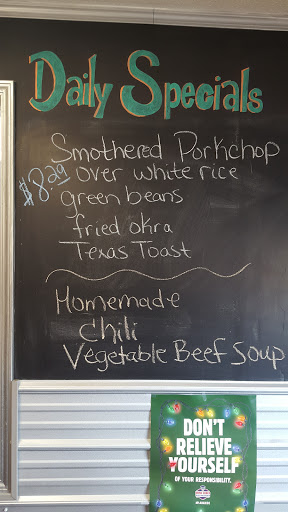 Daily Specials
Smothered Porkchop
$8.29 over white rice
green beans
fried okra
Texas Toast
Homemade
chili
Vegetable Beef Soup
DON'T
RELIEVE
YOURSELF
OF YOUR RESPONSIBILITY.